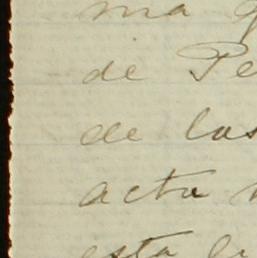 ma
de Pe
de las
acta
esta